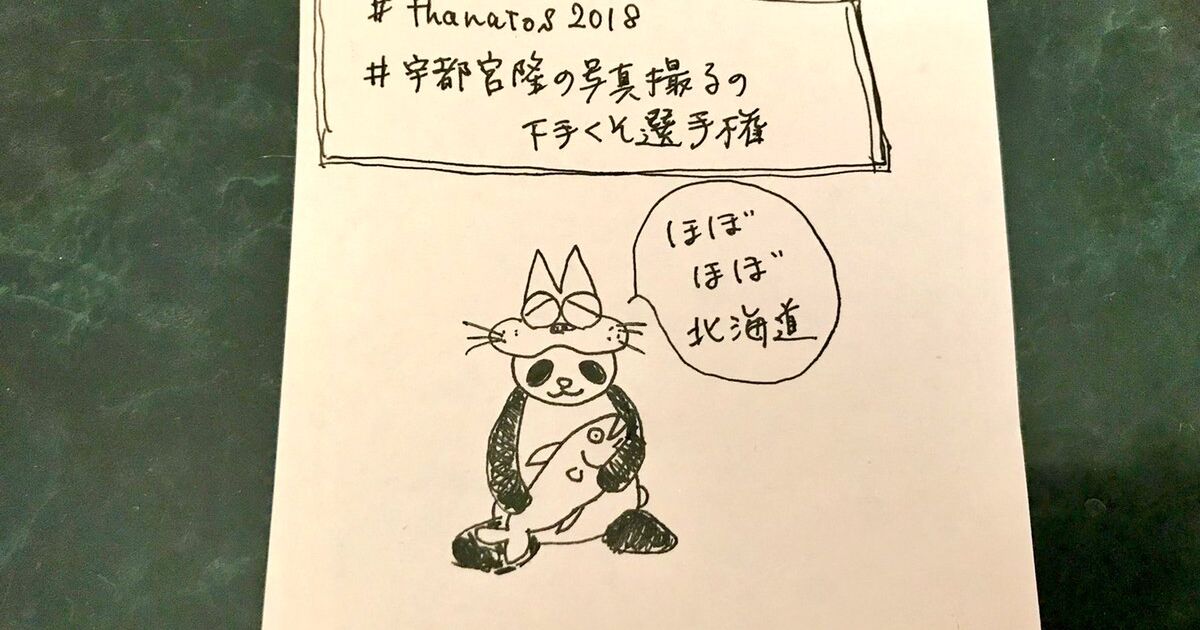 # thanatos 2018
#宇都宮隆の写真撮るの
下手くそ選手権
ほぼ
ほぼ
北海道